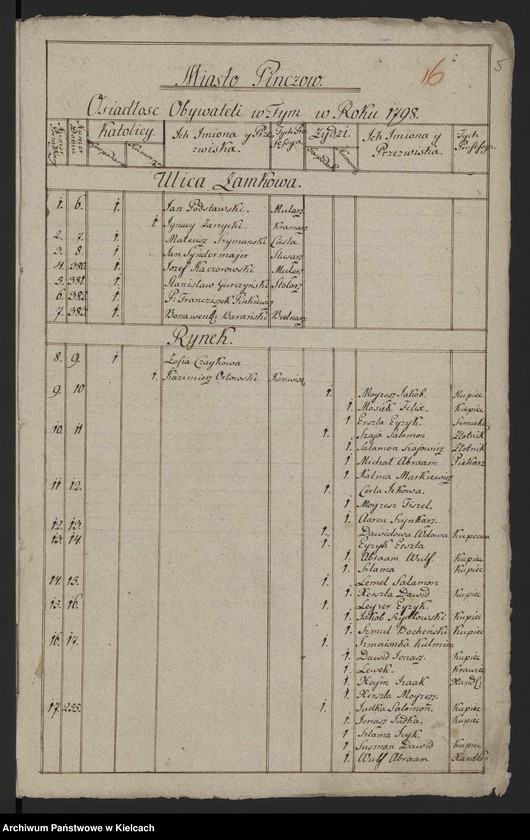 16
5
Miasto Pinczow.
Osiadlosc Obywateli w Tym w Roku 1798.
Katolicy
Ich Imiona y Przezwiska.
Tych Professya
Zydzi.
Ich Imiona y Przezwiska.
Tych Professya
Ulica Zamkowa.
1. 6. 1. Jan Podstawski. Mularz
1. Ignacy Zarzycki. Kramarz
2. 7. 1. Mateusz Szymanski
3. 8. 1. Jan Syndermajer Slusarz
4. 380. 1. Jozef Kaczorowski Mularz
5. 381. 1. Stanislaw Gurczynski Stolarz
6. 382. 1. P. Franciszek
7. 383. 1. Bonawent. Baranski Bednarz
Rynek.
8. 9. 1 Zofia Czaykowa
1. Kazimierz Orlowski
9. 10 1. Moyzesz Jakob. Kupiec
1. Mosiek Felix. Kupiec
1. Erszla Eyzyk.
10. 11 1. Szaja Salomon Zlotnik
1. Salamon Szajowicz Zlotnik
1 Michal Abraam Piekarz
1. Kalma Markiewicz
11. 12. 1. Cerla Ickowa.
1 Moyzesz Fiszel.
1. Aaron Szynkarz.
12. 13. 1. Dawidowa Wdowa Kupcowa
13. 14 1. Eyzyk Erszla
1. Abraam Wulf. Kupiec
1. Szlama Kupiec
14. 15. 1. Lemel Salamon
1. Herszla Dawid Kupiec
15. 16. 1. Leyzer Eyzyk.
1. Jakob Szydlowski Kupiec
1. Szmul Bochenski Kupiec
16. 17. 1. Szmaionka
1. Dawid Jonasz. Kupiec
1. Lewek. Krawiec
1. Hajm Izaak Handl.
1. Herszla Moyzesz
17. 255. 1. Judka Salomon. Kupiec
1. Jonasz Judka. Kupiec
1. Szlama Icyk.
1. Susman Dawid Kupiec
1. Wulf Abraam
Archiwum Państwowe w Kielcach